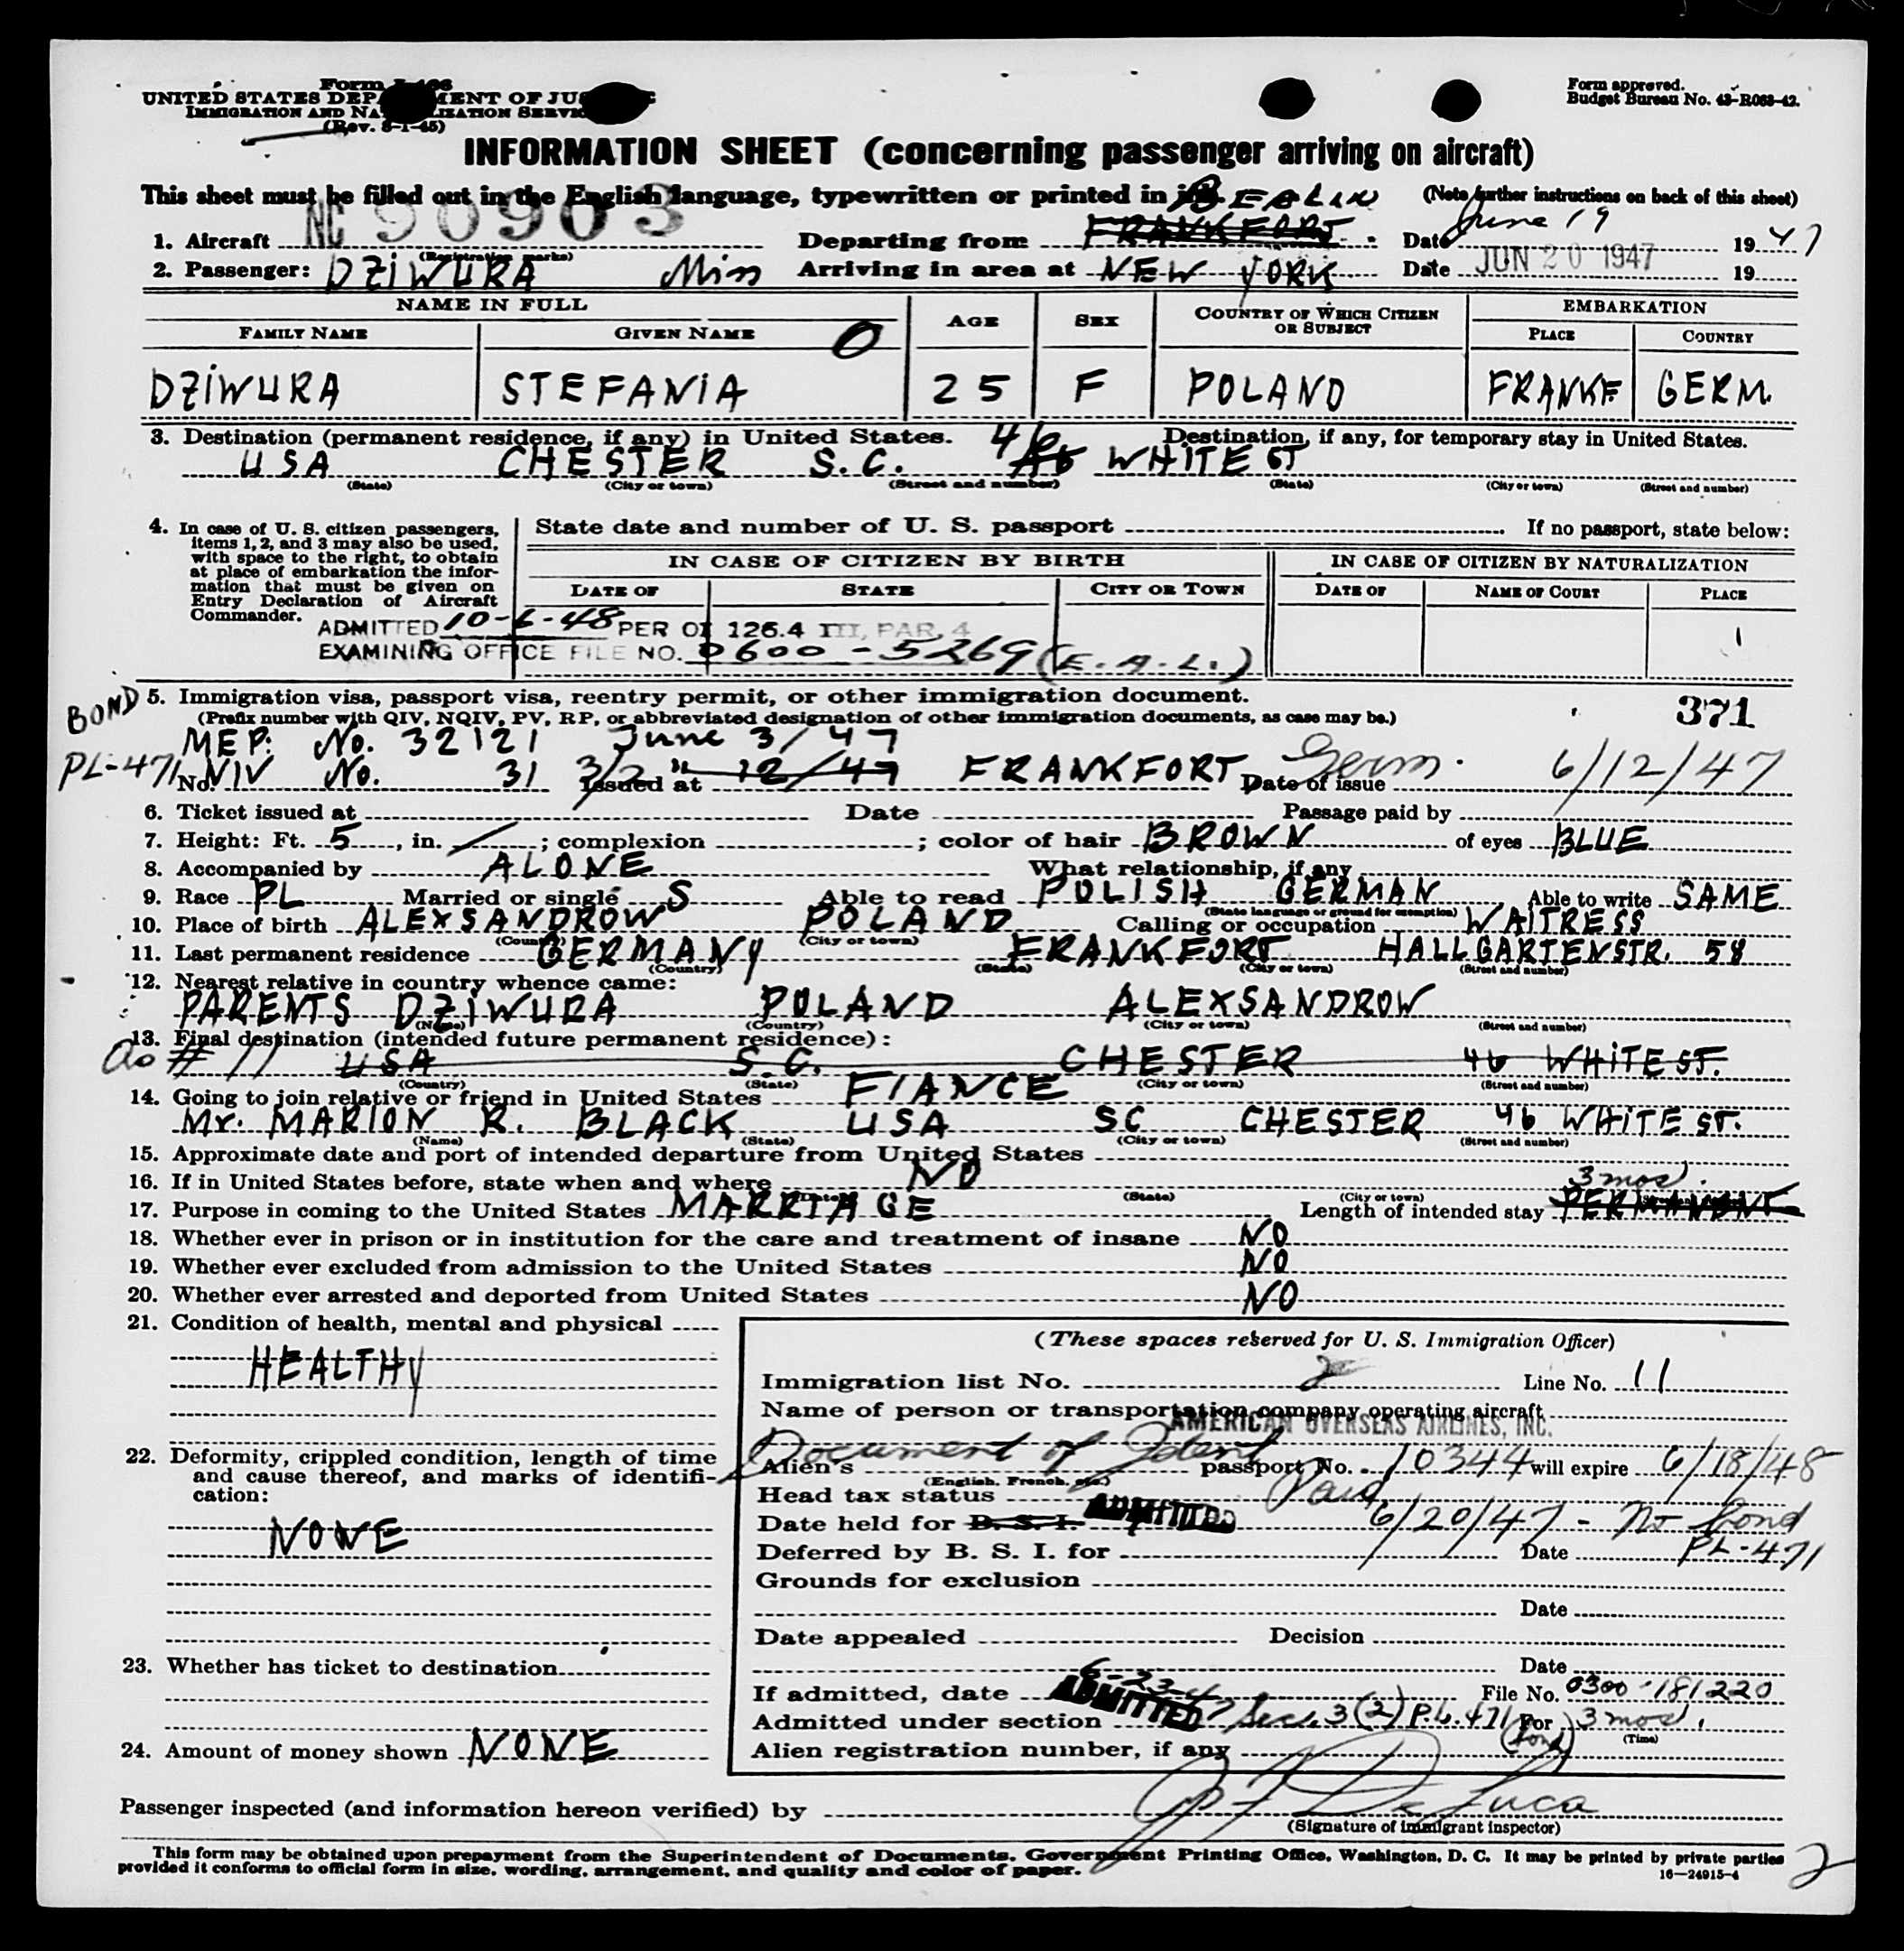 Form I-466
UNITED STATES DEPARTMENT OF JUSTICE
IMMIGRATION AND NATURALIZATION SERVICE
(Rev. 8-1-45)
Form approved.
Budget Bureau No. 43-R063-42.
INFORMATION SHEET (concerning passenger arriving on aircraft)
This sheet must be filled out in the English language, typewritten or printed in ink. (Note further instructions on back of this sheet)
BERLIN
1. Aircraft NC 90903 (Registration marks) Departing from FRANKFORT Date June 19 1947
2. Passenger: DZIWURA Miss Arriving in area at NEW YORK Date JUN 20 1947 19
NAME IN FULL AGE SEX COUNTRY OF WHICH CITIZEN OR SUBJECT EMBARKATION
FAMILY NAME GIVEN NAME O PLACE COUNTRY
DZIWURA STEFANIA 25 F POLAND FRANKF GERM.
3. Destination (permanent residence, if any) in United States. Destination, if any, for temporary stay in United States.
USA CHESTER S.C. 46 WHITE ST
(State) (City or town) (Street and number) (State) (City or town) (Street and number)
4. In case of U. S. citizen passengers, items 1, 2, and 3 may also be used, with space to the right, to obtain at place of embarkation the information that must be given on Entry Declaration of Aircraft Commander.
State date and number of U. S. passport If no passport, state below:
IN CASE OF CITIZEN BY BIRTH IN CASE OF CITIZEN BY NATURALIZATION
DATE OF STATE CITY OR TOWN DATE OF NAME OF COURT PLACE
ADMITTED 10-6-48 PER OI 126.4 III, PAR. 4
EXAMINING OFFICE FILE NO. 0600-5269 (E.A.L.)
BOND
PL-471
5. Immigration visa, passport visa, reentry permit, or other immigration document.
(Prefix number with QIV, NQIV, PV, RP, or abbreviated designation of other immigration documents, as case may be.) 371
MEP. No. 32121 June 3/47
No. NIV No. 31 3/2 " 12/47 Issued at FRANKFORT Germ. Date of issue 6/12/47
6. Ticket issued at Date Passage paid by
7. Height: Ft. 5, in. ; complexion ; color of hair BROWN of eyes BLUE
8. Accompanied by ALONE What relationship, if any
9. Race PL Married or single S Able to read POLISH GERMAN Able to write SAME
(State language or ground for exemption)
10. Place of birth ALEXSANDROW POLAND Calling or occupation WAITRESS
(Country) (City or town)
11. Last permanent residence GERMANY FRANKFORT HALLGARTENSTR. 58
(Country) (State) (City or town) (Street and number)
12. Nearest relative in country whence came:
PARENTS DZIWURA POLAND ALEXSANDROW
(Name) (Country) (City or town) (Street and number)
13. Final destination (intended future permanent residence):
as # 11 USA S.C. CHESTER 46 WHITE ST.
(Country) (State) (City or town) (Street and number)
14. Going to join relative or friend in United States FIANCE
Mr. MARION R. BLACK USA SC CHESTER 46 WHITE ST.
(Name) (State) (City or town) (Street and number)
15. Approximate date and port of intended departure from United States
16. If in United States before, state when and where NO
(Date) (State) (City or town) (Street and number)
3 mos.
17. Purpose in coming to the United States MARRIAGE Length of intended stay PERMANENT
18. Whether ever in prison or in institution for the care and treatment of insane NO
19. Whether ever excluded from admission to the United States NO
20. Whether ever arrested and deported from United States NO
21. Condition of health, mental and physical
HEALTHY
22. Deformity, crippled condition, length of time and cause thereof, and marks of identification:
NONE
23. Whether has ticket to destination
24. Amount of money shown NONE
(These spaces reserved for U. S. Immigration Officer)
Immigration list No. 2 Line No. 11
Name of person or transportation company operating aircraft
AMERICAN OVERSEAS AIRLINES, INC.
Alien's Document of Ident passport No. 10344 will expire 6/18/48
(English, French, etc.)
Head tax status Paid
Date held for B. S. I. ADMITTED 6/20/47 - No Bond
Deferred by B. S. I. for Date PL-471
Grounds for exclusion
Date
Date appealed Decision
Date
If admitted, date 6-23-47 File No. 0300-181220
ADMITTED
Admitted under section Sec. 3(2) P.L. 471 For 3 mos.
(Bond) (Time)
Alien registration number, if any
Passenger inspected (and information hereon verified) by De Luca
(Signature of immigrant inspector)
This form may be obtained upon prepayment from the Superintendent of Documents, Government Printing Office, Washington, D. C. It may be printed by private parties
provided it conforms to official form in size, wording, arrangement, and quality and color of paper.
16—24915-4
2